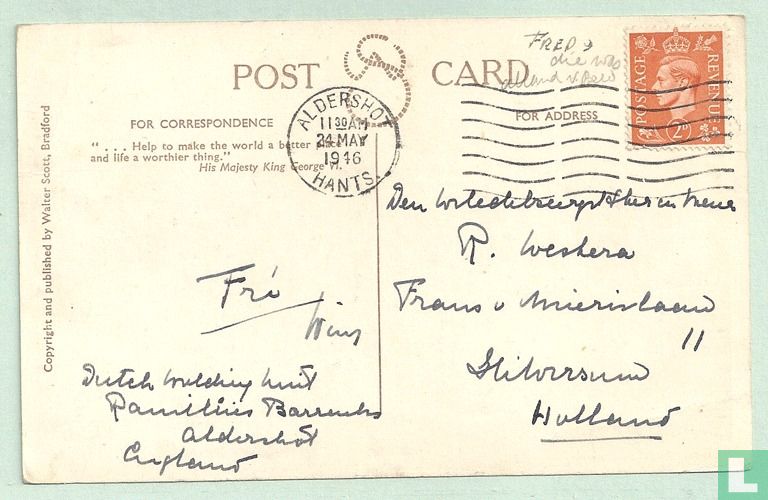 POST CARD
FRED,
die was
POSTAGE REVENUE
2D
ALDERSHOT
11 30 AM
24 MAY
1946
HANTS.
FOR CORRESPONDENCE
" . . . Help to make the world a better place
and life a worthier thing."
His Majesty King George VI.
FOR ADDRESS
Copyright and published by Walter Scott, Bradford
Den
R. Westera
Frans v Mierislaan
11
Hilversum
Holland
Fri
Wim
Dutch Holding Unit
Ramillies Barracks
Aldershot
England
LastDodo